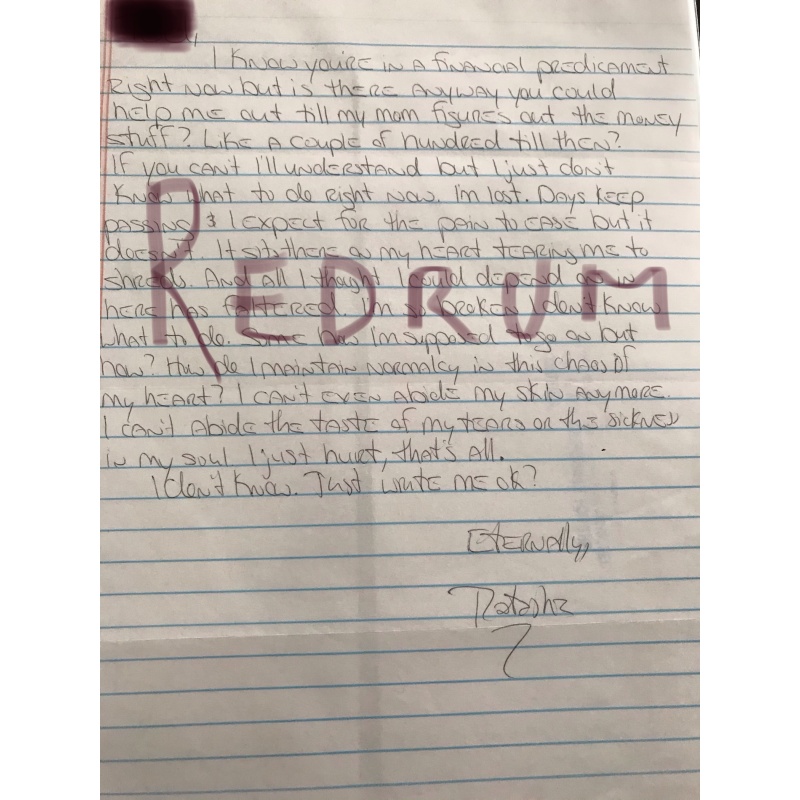 I know you're in a financial predicament
right now but is there anyway you could
help me out till my mom figures out the money
stuff? Like a couple of hundred till then?
If you can't I'll understand but I just don't
know what to do right now. I'm lost. Days keep
passing & I expect for the pain to ease but it
doesn't. It sits there on my heart tearing me to
shreds. And all I thought I could depend on in
here has faltered. I'm so broken I don't know
what to do. Some how I'm supposed to go on but
how? How do I maintain normalcy in this chaos of
my heart? I can't even abide my skin anymore.
I can't abide the taste of my tears or the sickness
in my soul. I just hurt, that's all.
I don't know. Just write me ok?
Eternally,
Natasha
REDRUM